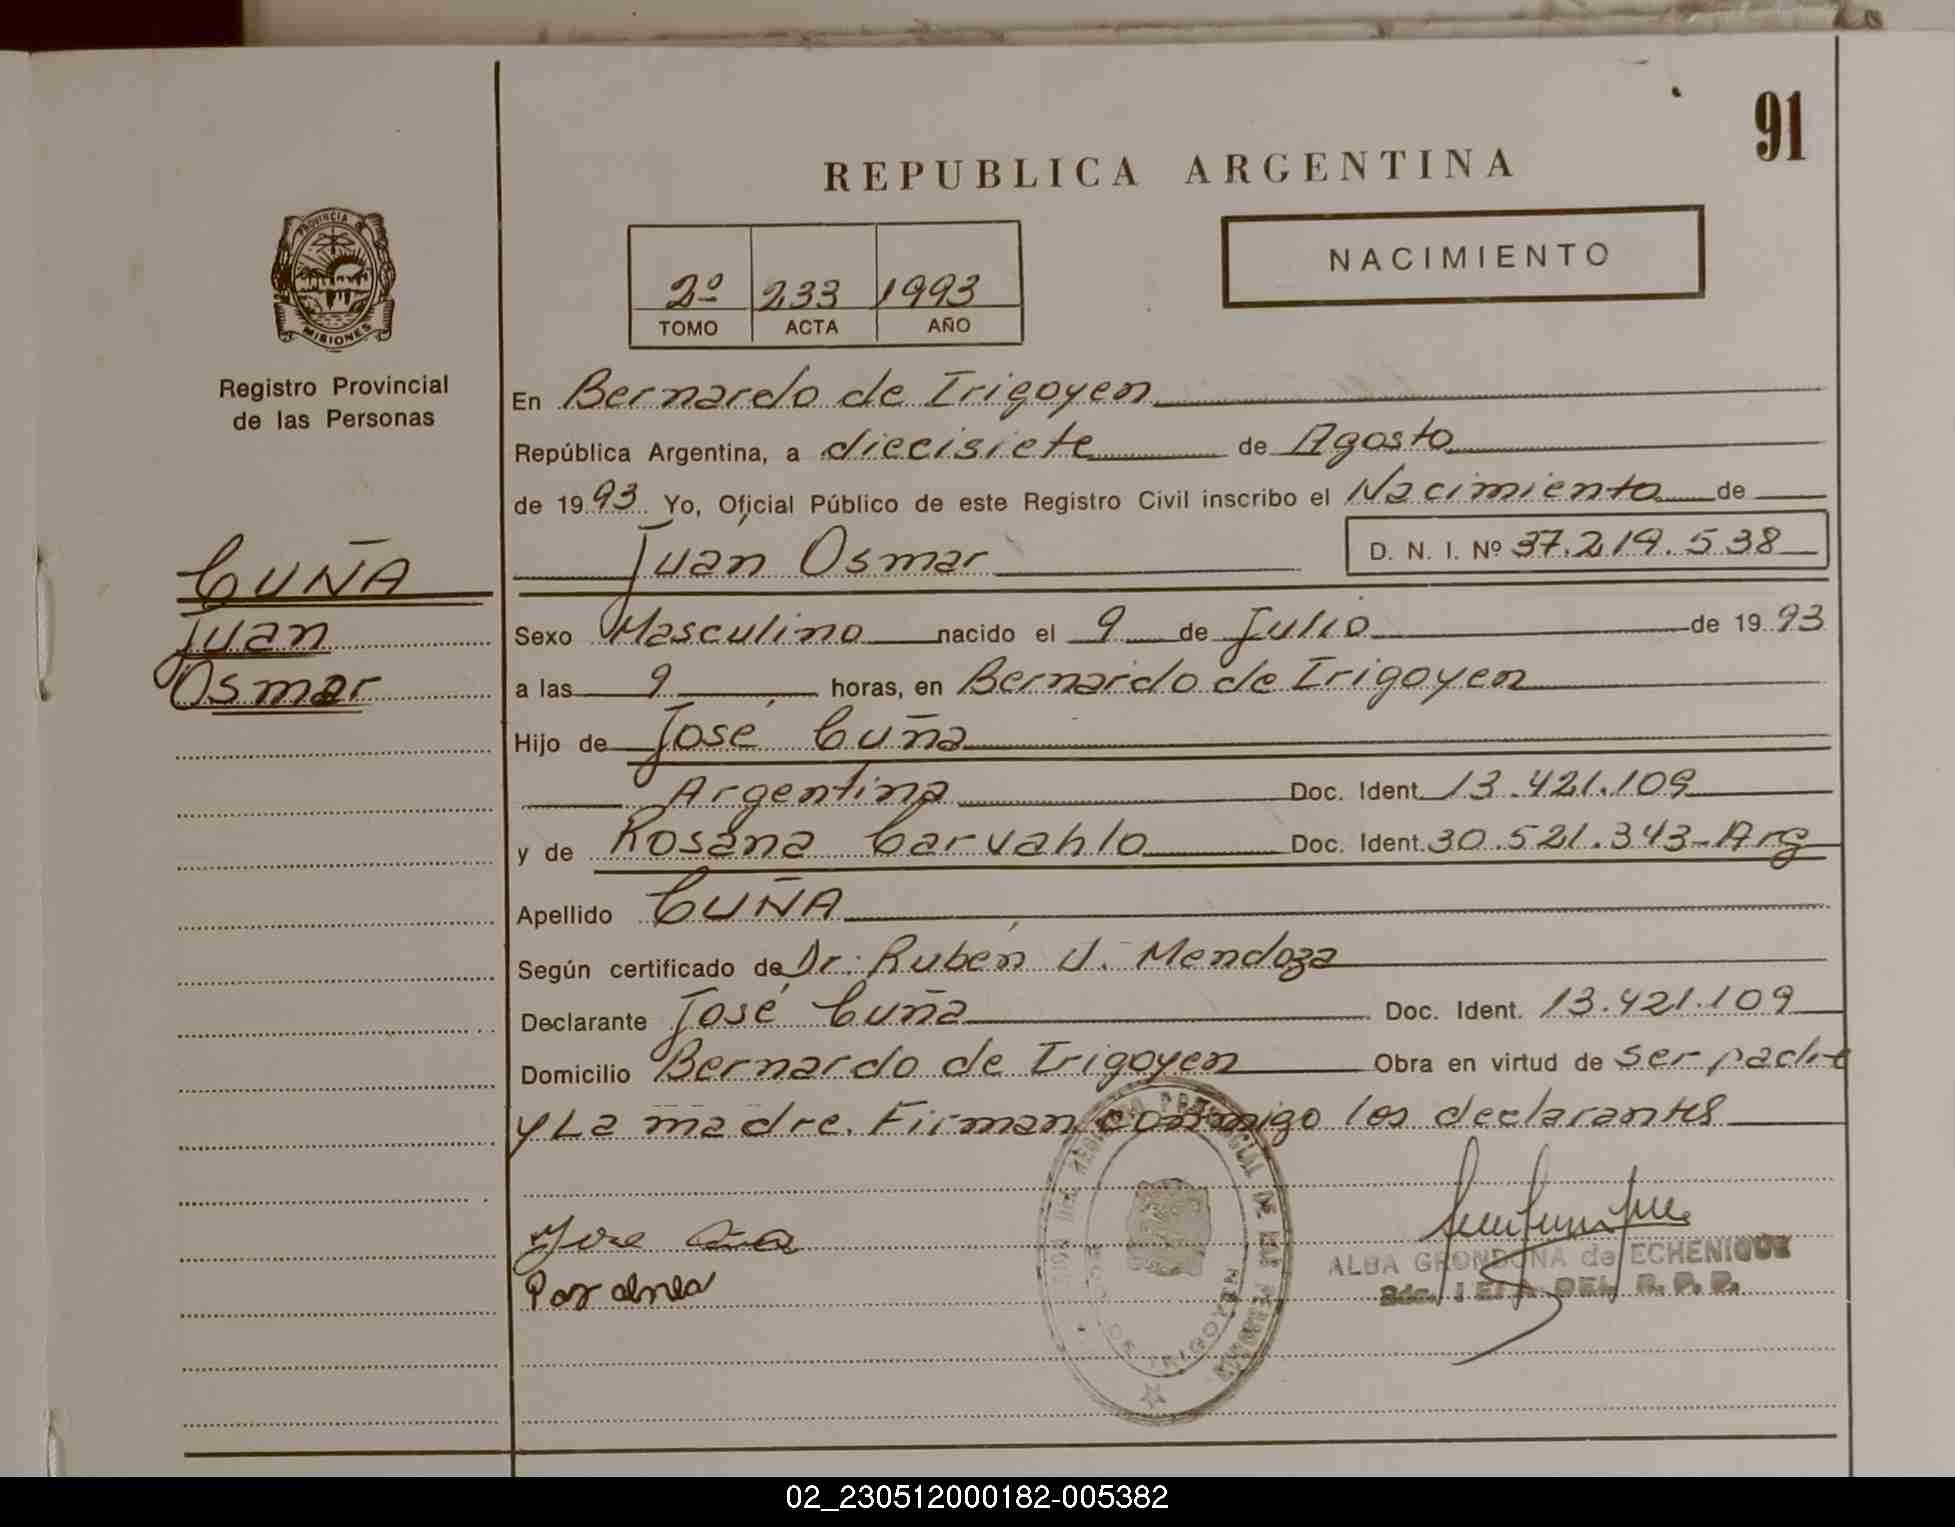 91
REPUBLICA ARGENTINA
NACIMIENTO
2º 233 1993
TOMO ACTA AÑO
PROVINCIA
MISIONES
Registro Provincial
de las Personas
CUÑA
Juan
Osmar
En Bernardo de Irigoyen
República Argentina, a diecisiete de Agosto
de 1993 Yo, Oficial Público de este Registro Civil inscribo el Nacimiento de
Juan Osmar D. N. I. Nº 37.219.538
Sexo Masculino nacido el 9 de Julio de 1993
a las 9 horas, en Bernardo de Irigoyen
Hijo de José Cuña
Argentina Doc. Ident. 13.421.109
y de Rosana Carvahlo Doc. Ident. 30.521.343-Arg
Apellido CUÑA
Según certificado de Dr. Rubén U. Mendoza
Declarante José Cuña Doc. Ident. 13.421.109
Domicilio Bernardo de Irigoyen Obra en virtud de ser padre
y La madre. Firman conmigo los declarantes
ALBA GRONDONA de ECHENIQUE
DEL R. P. P.
02_230512000182-005382